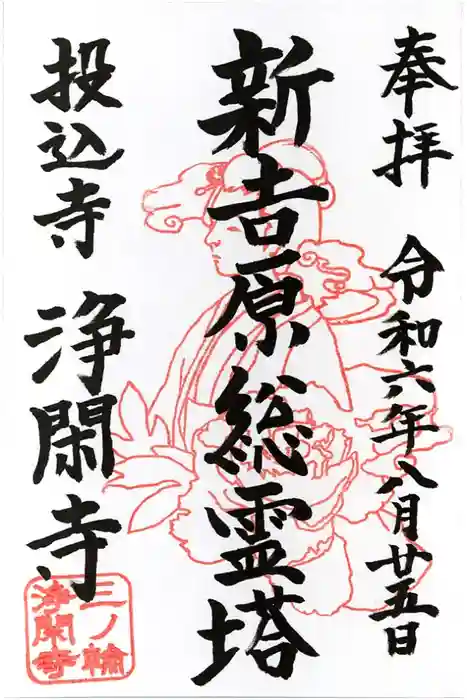 奉拝
令和六年八月廿五日
新吉原総霊塔
投込寺 浄閑寺
三ノ輪
浄閑寺